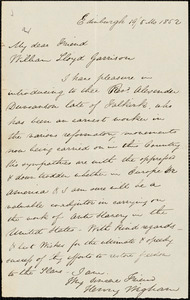 Edinburgh 19/8 Mo 1852
My dear Friend
William Lloyd Garrison
I have pleasure in
introducing to thee Rev Alexander
Duncanson late of Falkirk who
has been an earnest worker in
the various reformatory movements
now being carried on in this Country
his sympathies are with the oppressed
& down trodden whether in Europe or
America & I am sure will be a
valuable coadjutor in carrying on
the work of Anti Slavery in the
United States. With kind regards
& best wishes for the ultimate & speedy
success of thy efforts to restore freedom
to the Slave. I am
Thy sincere Friend
Henry Wigham